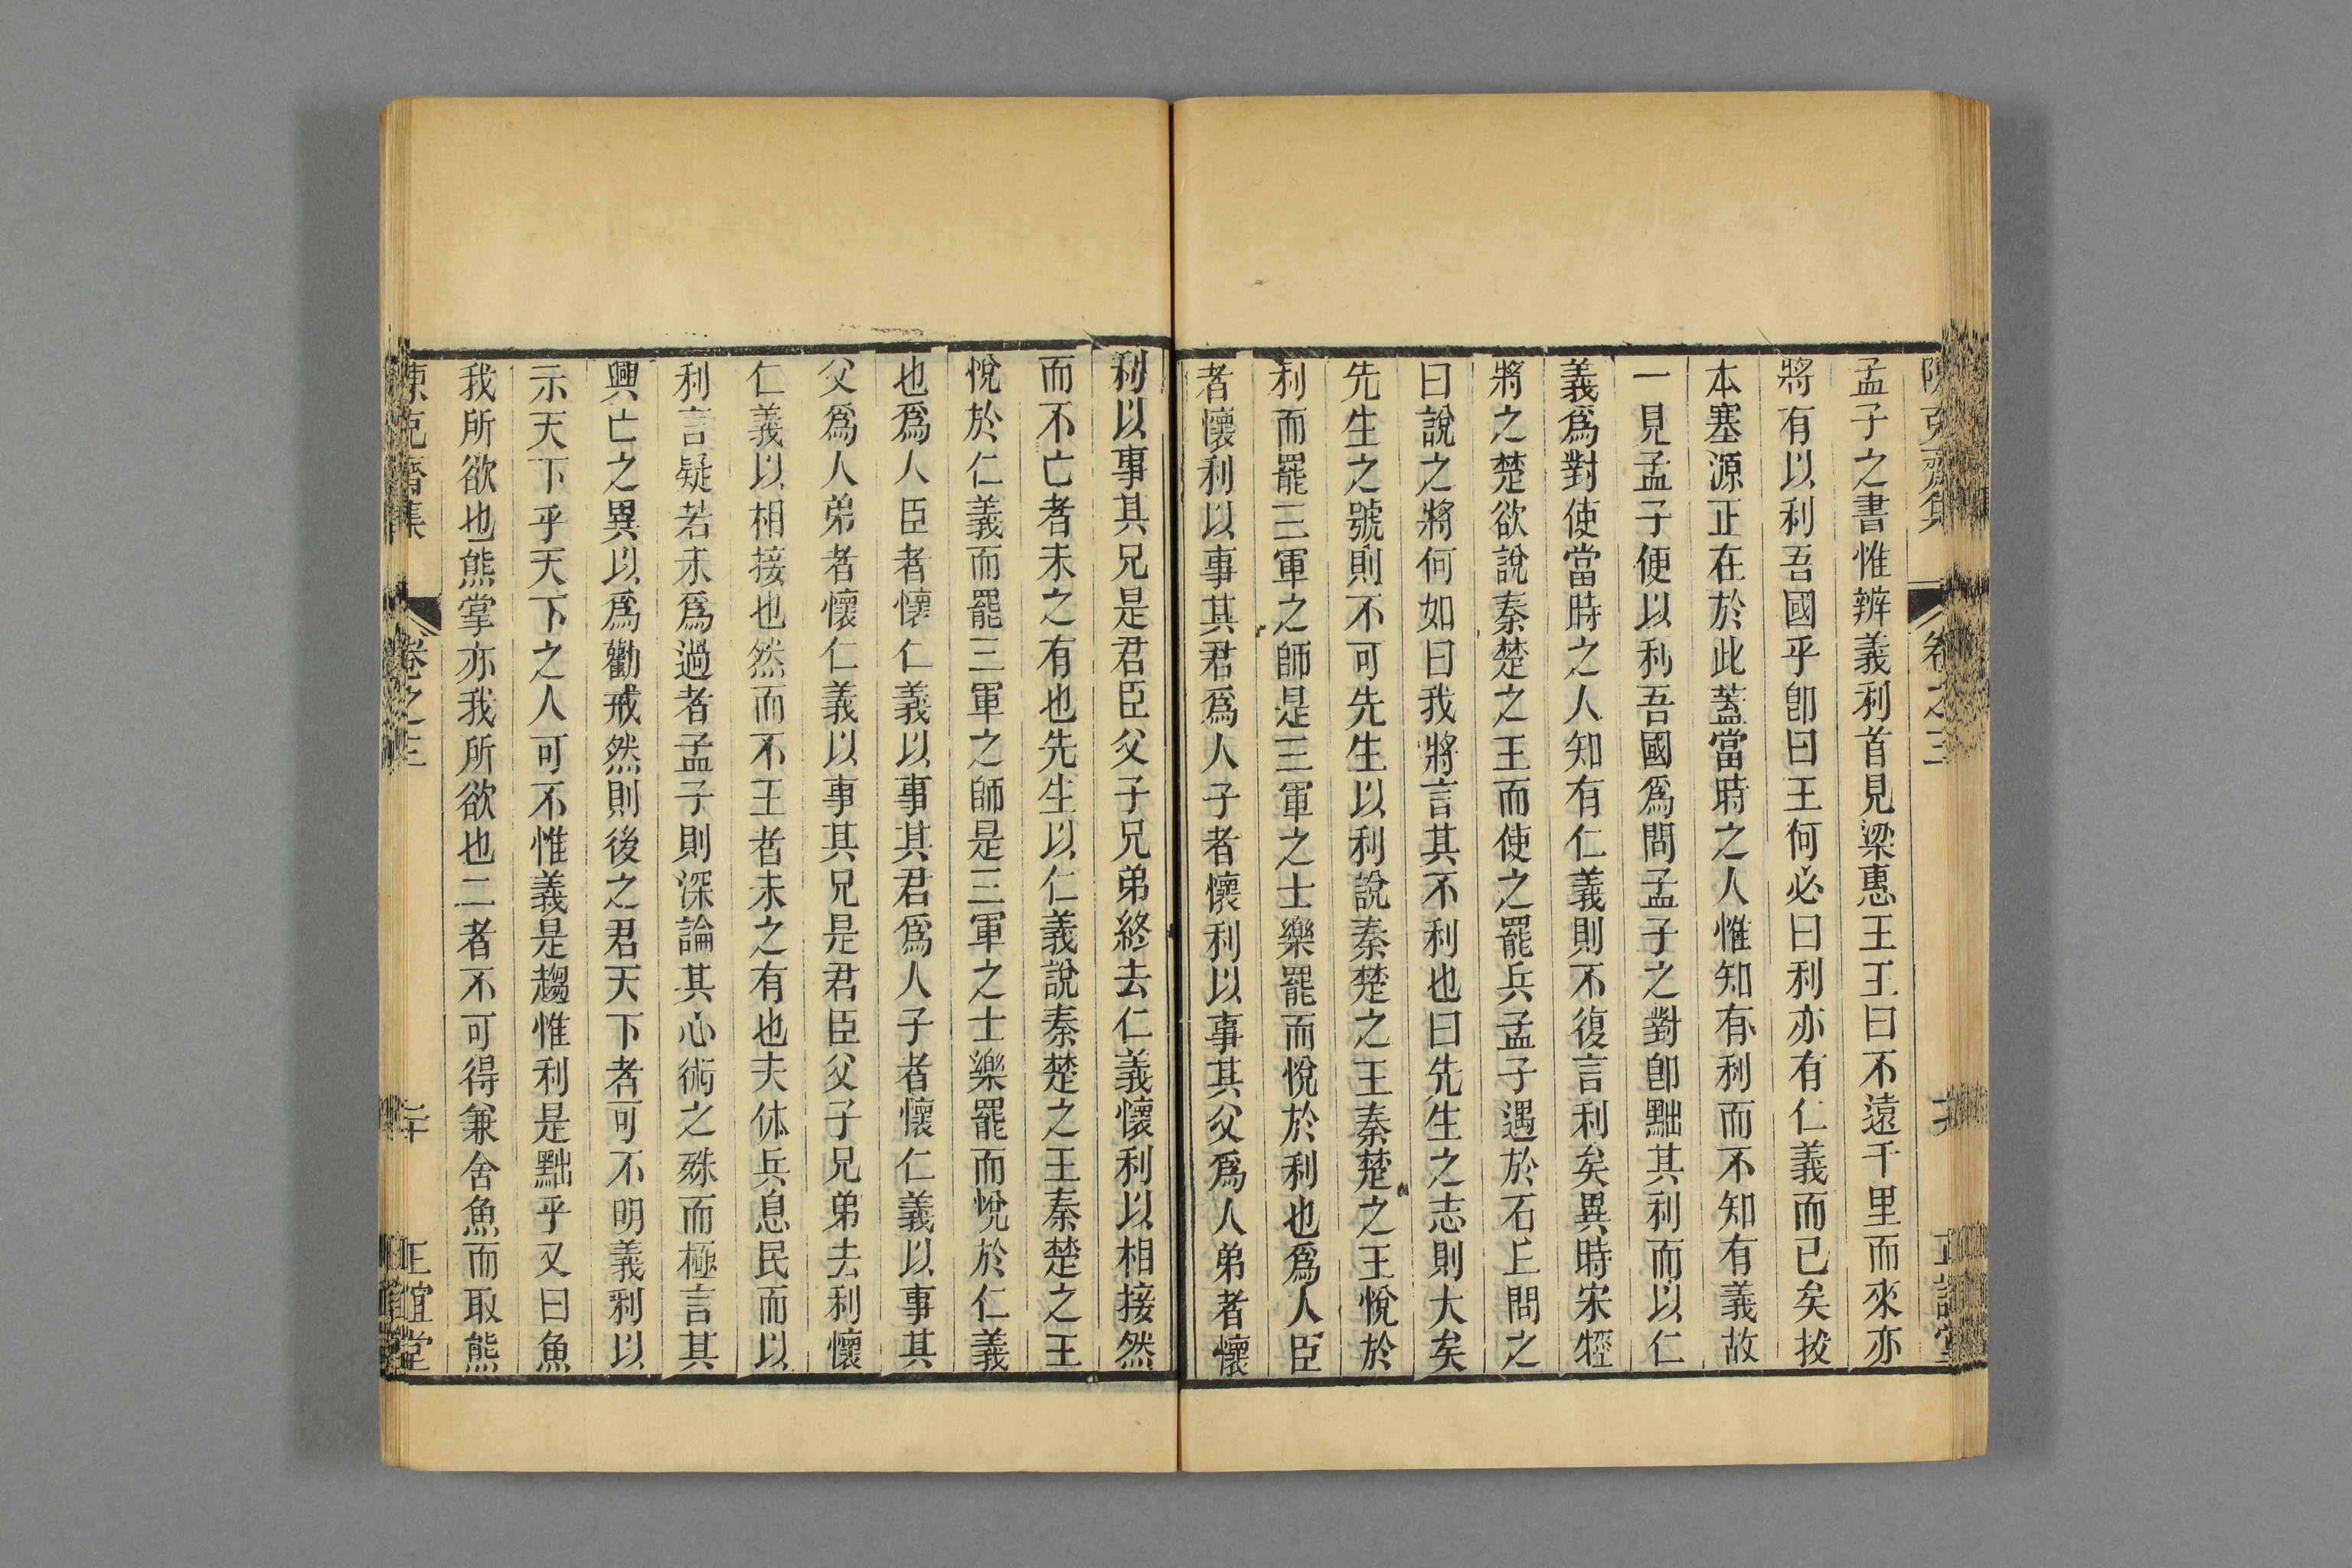 陳克齋集 卷之三 正誼堂
孟子之書惟辨義利首見梁惠王王曰不遠千里而來亦
將有以利吾國乎卽曰王何必曰利亦有仁義而已矣拔
本塞源正在於此蓋當時之人惟知有利而不知有義故
一見孟子便以利吾國爲問孟子之對卽黜其利而以仁
義爲對使當時之人知有仁義則不復言利矣異時宋牼
將之楚欲說秦楚之王而使之罷兵孟子遇於石丘問之
曰說之將何如曰我將言其不利也曰先生之志則大矣
先生之號則不可先生以利說秦楚之王秦楚之王悅於
利而罷三軍之師是三軍之士樂罷而悅於利也爲人臣
者懷利以事其君爲人子者懷利以事其父爲人弟者懷
利以事其兄是君臣父子兄弟終去仁義懷利以相接然
而不亡者未之有也先生以仁義說秦楚之王秦楚之王
悅於仁義而罷三軍之師是三軍之士樂罷而悅於仁義
也爲人臣者懷仁義以事其君爲人子者懷仁義以事其
父爲人弟者懷仁義以事其兄是君臣父子兄弟去利懷
仁義以相接也然而不王者未之有也夫休兵息民而以
利言疑若未爲過者孟子則深論其心術之殊而極言其
興亡之異以爲勸戒然則後之君天下者可不明義利以
示天下乎天下之人可不惟義是趨惟利是黜乎又曰魚
我所欲也熊掌亦我所欲也二者不可得兼舍魚而取熊
陳克齋集 卷之三 二十 正誼堂